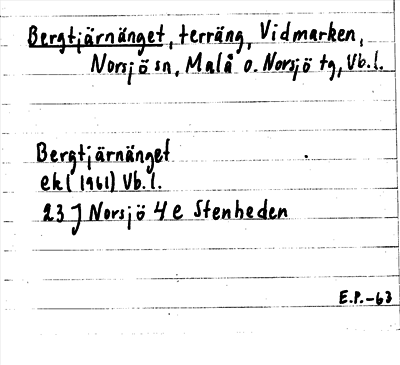 Bergtjärnänget, terräng, Vidmarken,
Norsjö sn, Malå o. Norsjö tg, Vb. l.
Bergtjärnänget
ek (1961) Vb. l.
23 J Norsjö 4 e Stenheden
E.P.-63